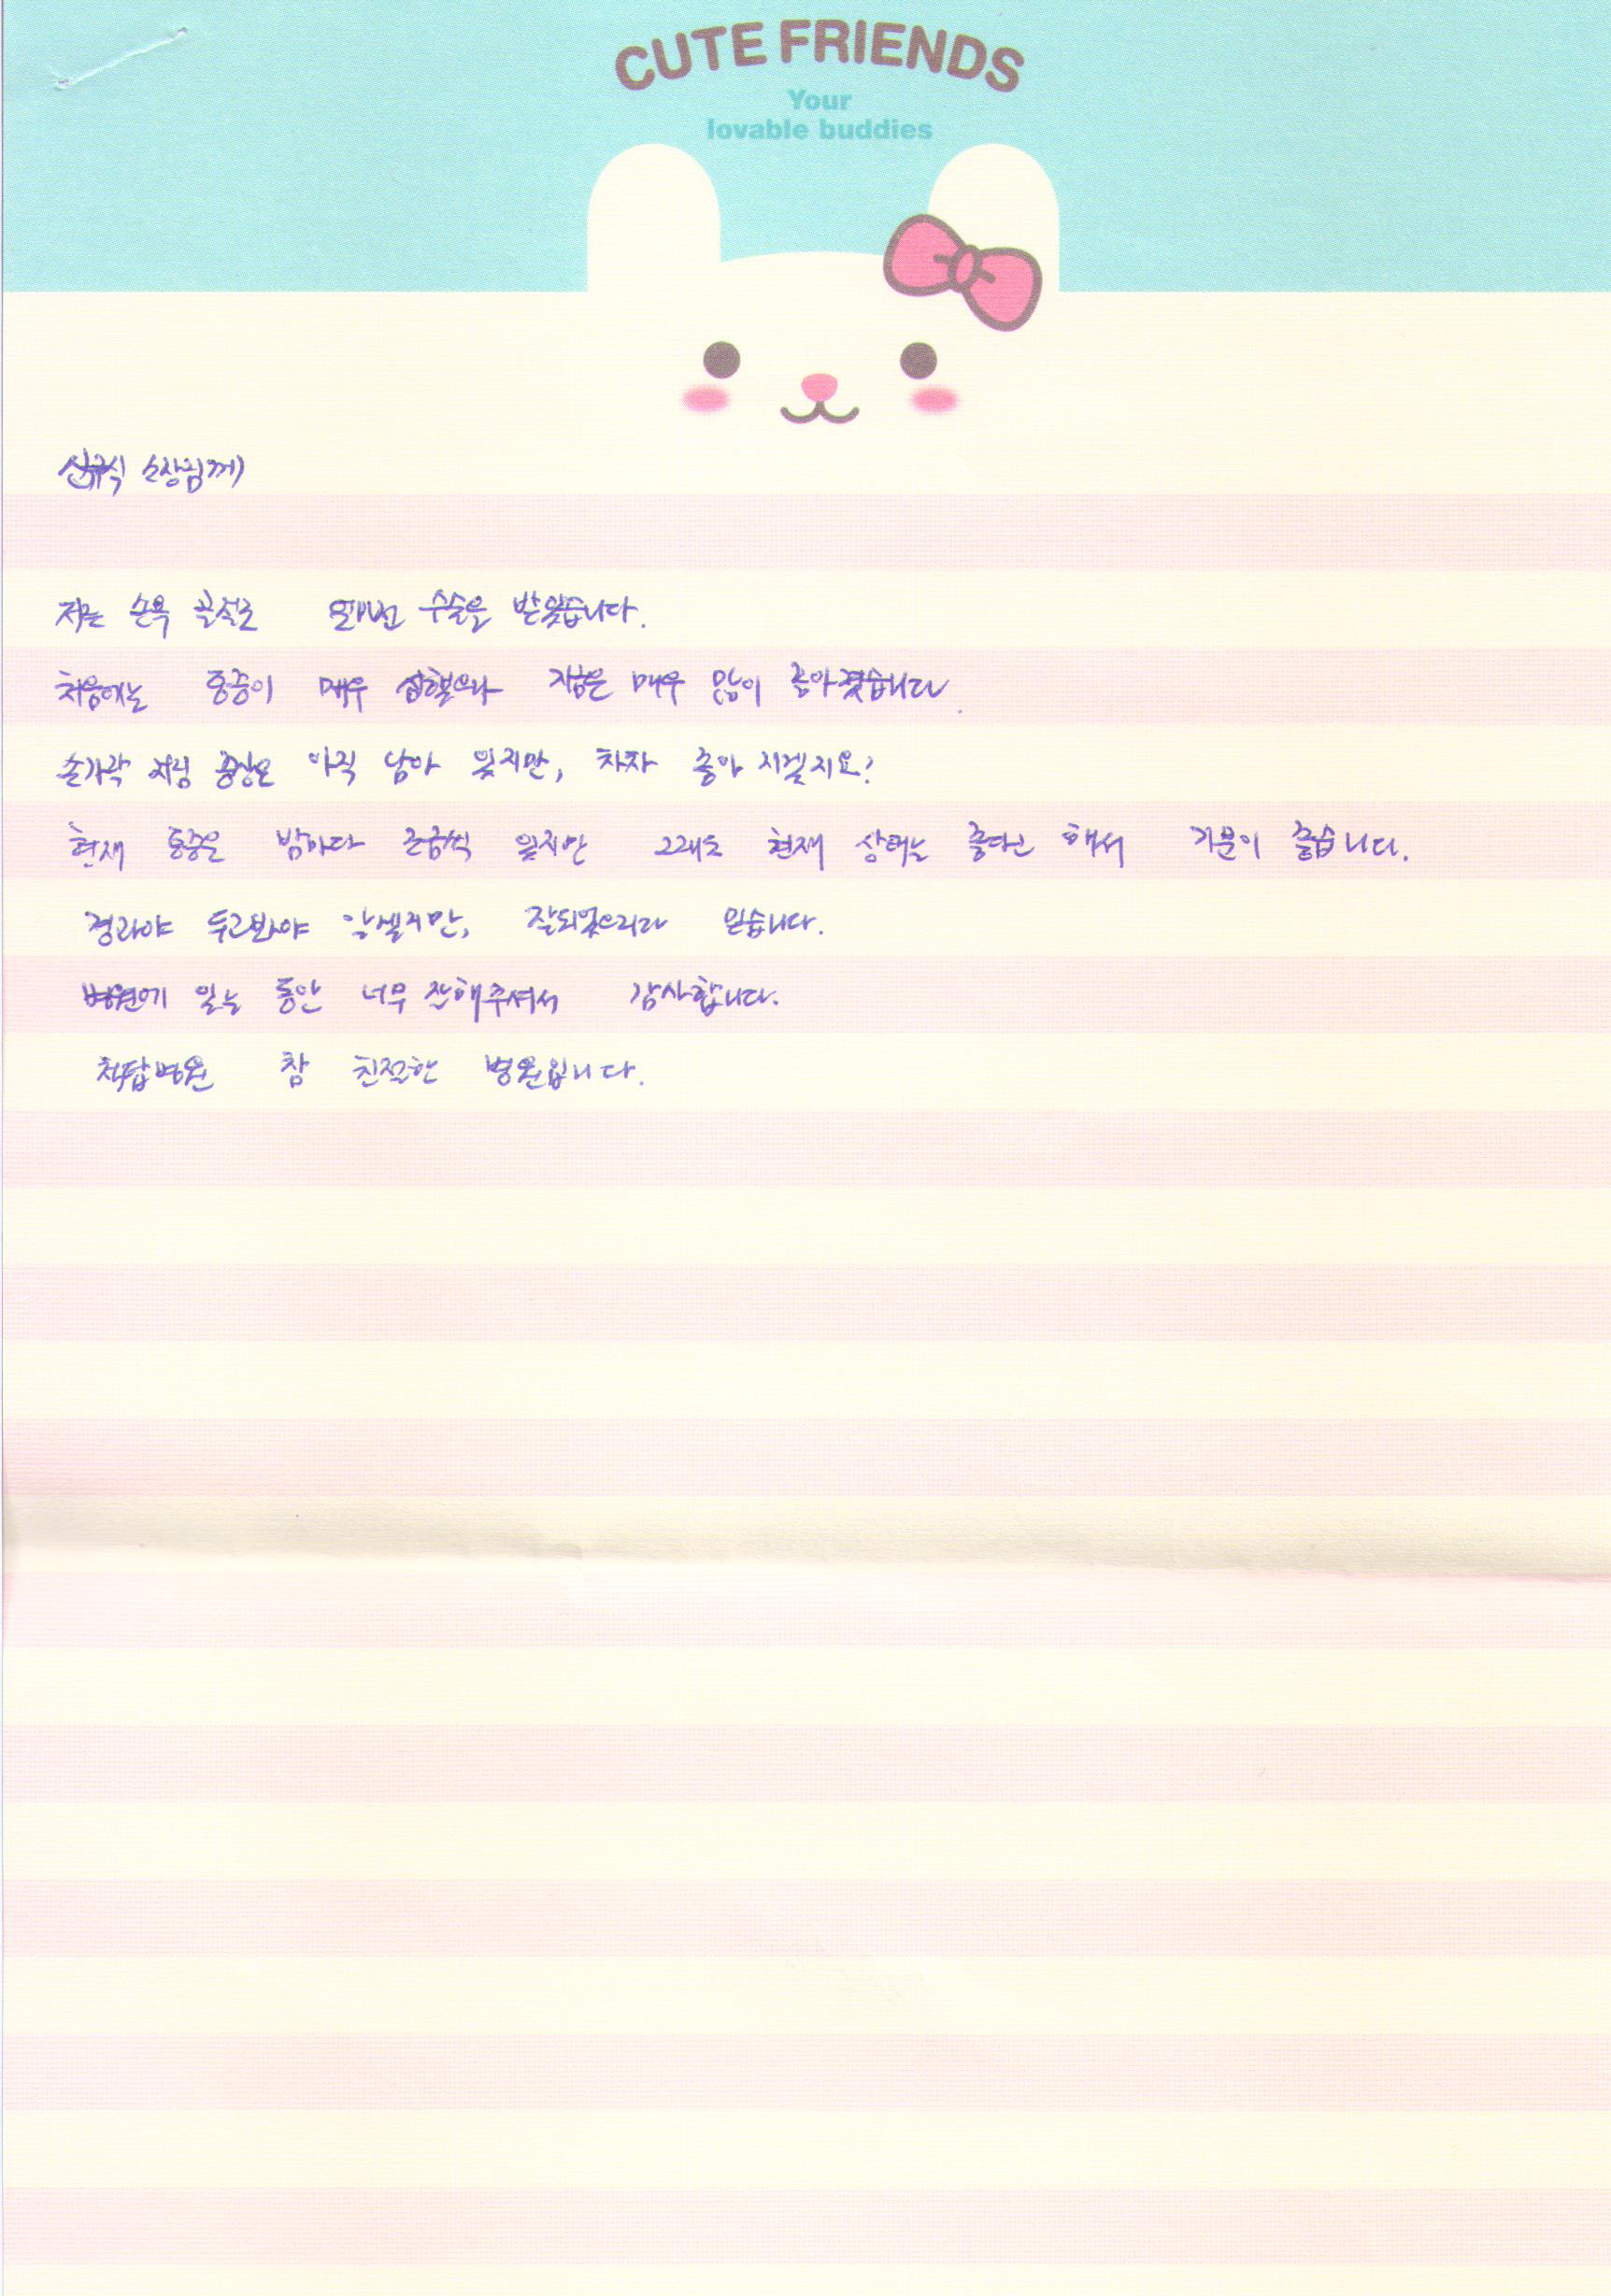 CUTE FRIENDS
Your
lovable buddies
신규식 소장님께
저는 손목 골절로 수술을 받았습니다.
처음에는 통증이 매우 심했으나 지금은 매우 많이 좋아졌습니다.
손가락 저림 증상은 아직 남아 있지만, 차차 좋아 지겠지요?
현재 통증은 밤마다 조금씩 있지만 그래도 현재 상태는 좋다고 해서 기분이 좋습니다.
경과야 두고봐야 알겠지만, 잘되었으리라 믿습니다.
병원에 있는 동안 너무 잘해주셔서 감사합니다.
척탑병원 참 친절한 병원입니다.